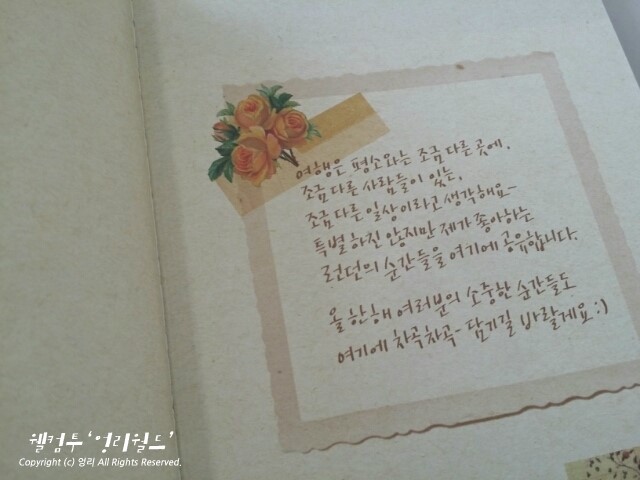 여행은 평소와는 조금 다른 곳에,
조금 다른 사람들이 있는,
조금 다른 일상이라고 생각해요~
특별하진 않지만 제가 좋아하는
런던의 순간들을 여기에 공유합니다.
올 한해 여러분의 소중한 순간들도
여기에 차곡차곡~ 담기길 바랄게요 :)
웰컴투 '영리월드'
Copyright (c) 영리 All Rights Reserved.